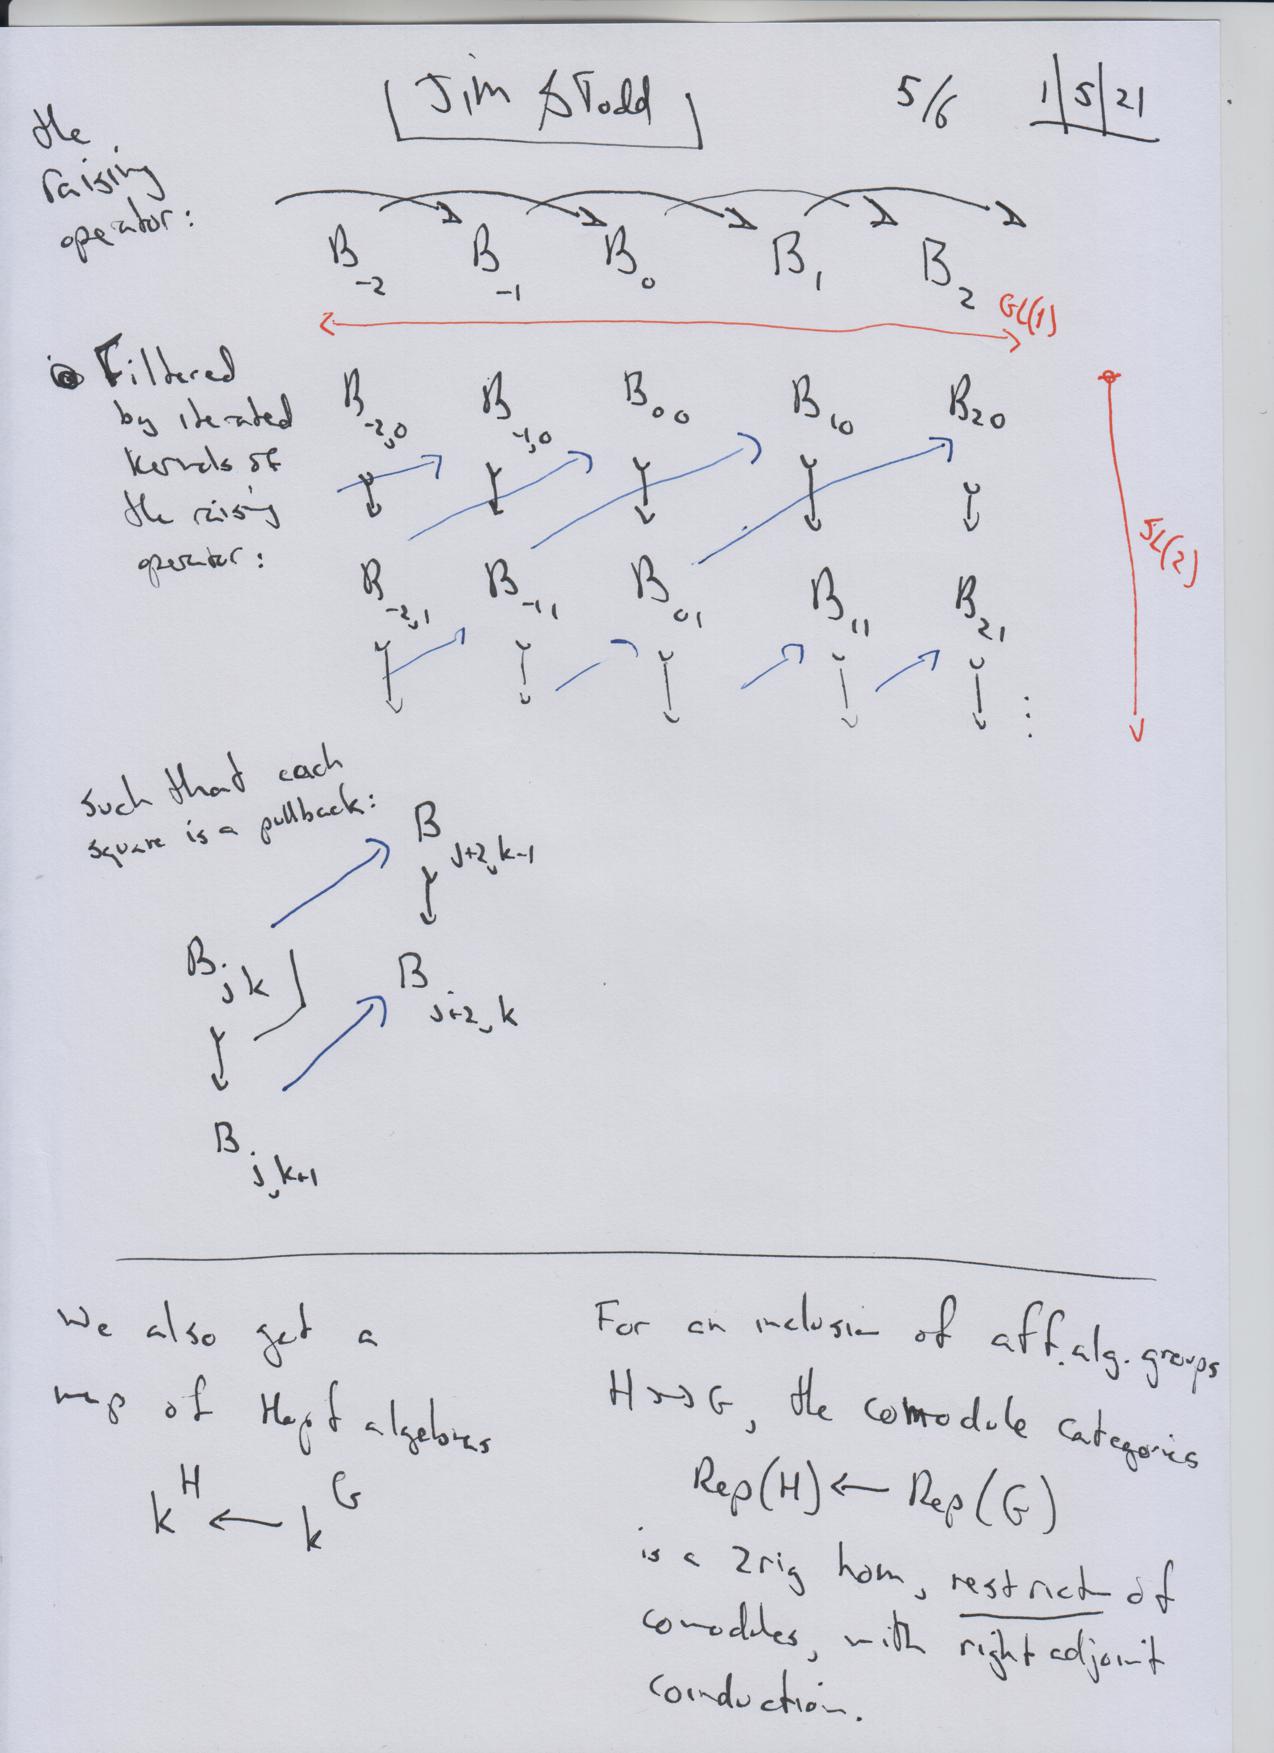 Jim & Todd 5/6 1|5|21
the
raising
operator:
B₋₂ B₋₁ B₀ B₁ B₂
GL(1)
• Filtered
by iterated
kernels of
the raising
operator:
B₋₂,₀ B₋₁,₀ B₀₀ B₁₀ B₂₀
SL(2)
B₋₂,₁ B₋₁₁ B₀₁ B₁₁ B₂₁
⋮
such that each
square is a pullback:
B j+2, k-1
B jk
B j+2, k
B j, k+1
We also get a
map of Hopf algebras
k^H ← k^G
For an inclusion of aff. alg. groups
H ↣ G, the comodule categories
Rep(H) ← Rep(G)
is a 2rig hom, restrict of
comodules, with right adjoint
coinduction.